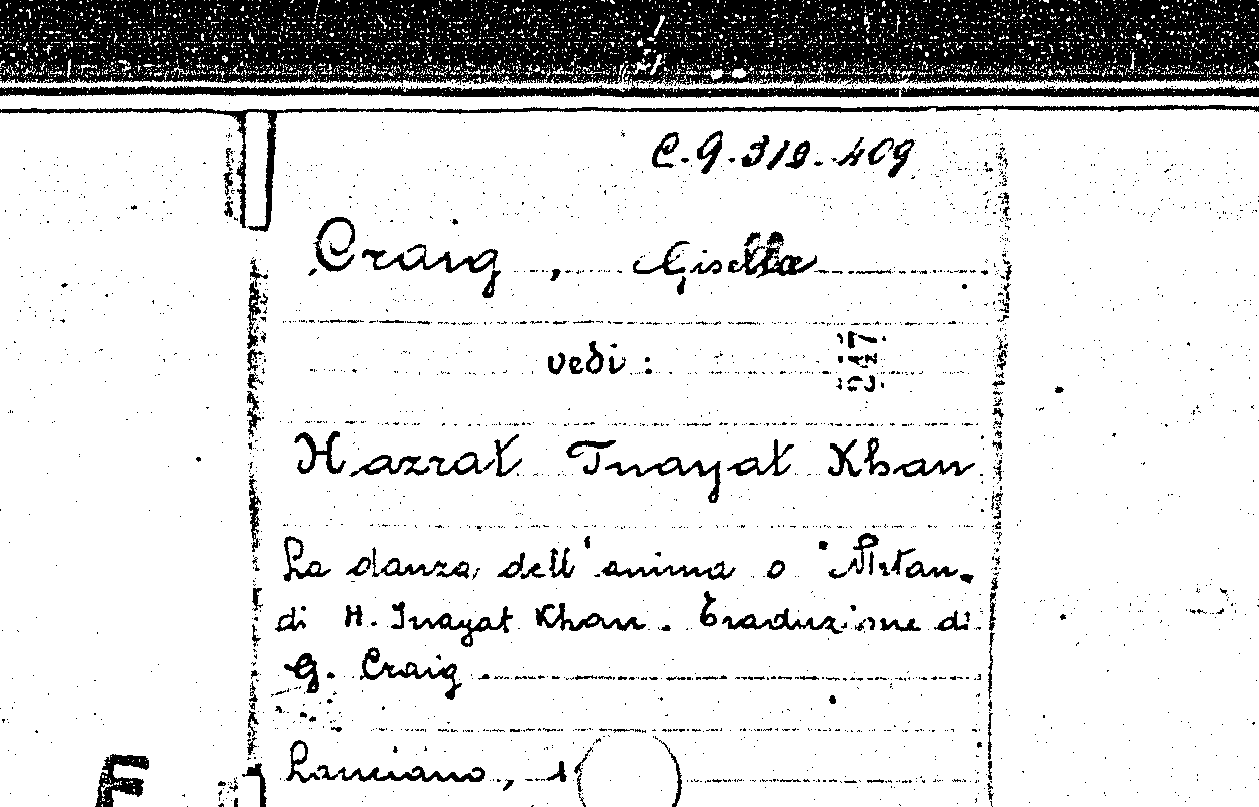 C.9.319.409
Craig, Gisella
vedi :
247
Hazrat Inayat Khan
La danza dell'anima o "Nirtan.
di H. Inayat Khan. Traduzione di
G. Craig.
Lanciano, 1
E